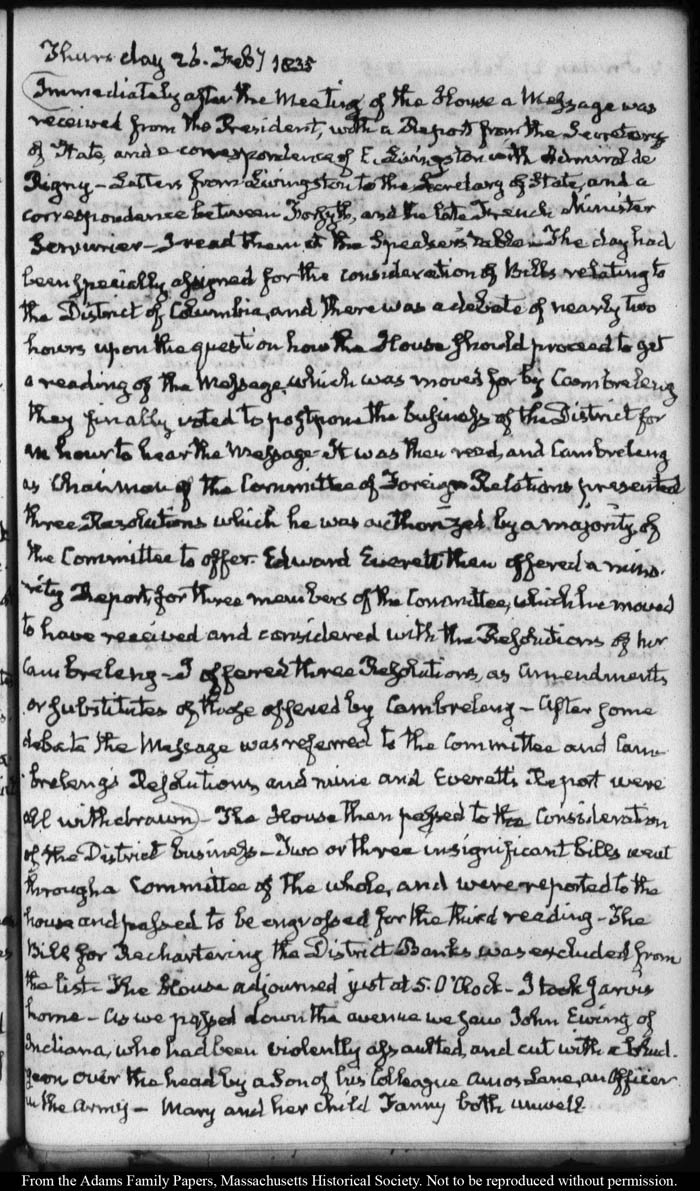 Thursday 26. Feby 1835
Immediately after the Meeting of the House a Message was
received from the President, with a Report from the Secretary
of State, and a correspondence of E. Livingston with Admiral de
Rigny — Letters from Livingston to the Secretary of State, and a
correspondence between Forsyth, and the late French Minister
Serrurier — I read them at the Speaker's table — The day had
been specially assigned for the consideration of Bills relating to
the District of Columbia, and there was a debate of nearly two
hours upon the question how the House should proceed to get
a reading of the Message, which was moved for by Cambreleng
they finally voted to postpone the business of the District for
an hour to hear the Message — It was then read, and Cambreleng
as Chairman of the Committee of Foreign Relations presented
three Resolutions which he was authorized by a majority of
the Committee to offer. Edward Everett then offered a mino-
rity Report, for three members of the Committee, which he moved
to have received and considered with the Resolutions of
Cambreleng — I offered three Resolutions, as amendments
or substitutes of those offered by Cambreleng — After some
debate the Message was referred to the Committee and Cam-
breleng's Resolutions, and mine and Everett's Report were
all withdrawn — The House then passed to the Consideration
of the District business — Two or three insignificant bills went
through a Committee of the whole, and were reported to the
house and passed to be engrossed for the third reading — The
Bill for Rechartering the District Banks was excluded from
the list — The House adjourned just at 5. O'Clock — I took Jarvis
home — As we passed down the avenue we saw John Ewing of
Indiana, who had been violently assaulted, and cut with a blud-
geon over the head by a Son of his Colleague Amos Lane, an Officer
in the Army — Mary and her child Fanny both unwell.
From the Adams Family Papers, Massachusetts Historical Society. Not to be reproduced without permission.